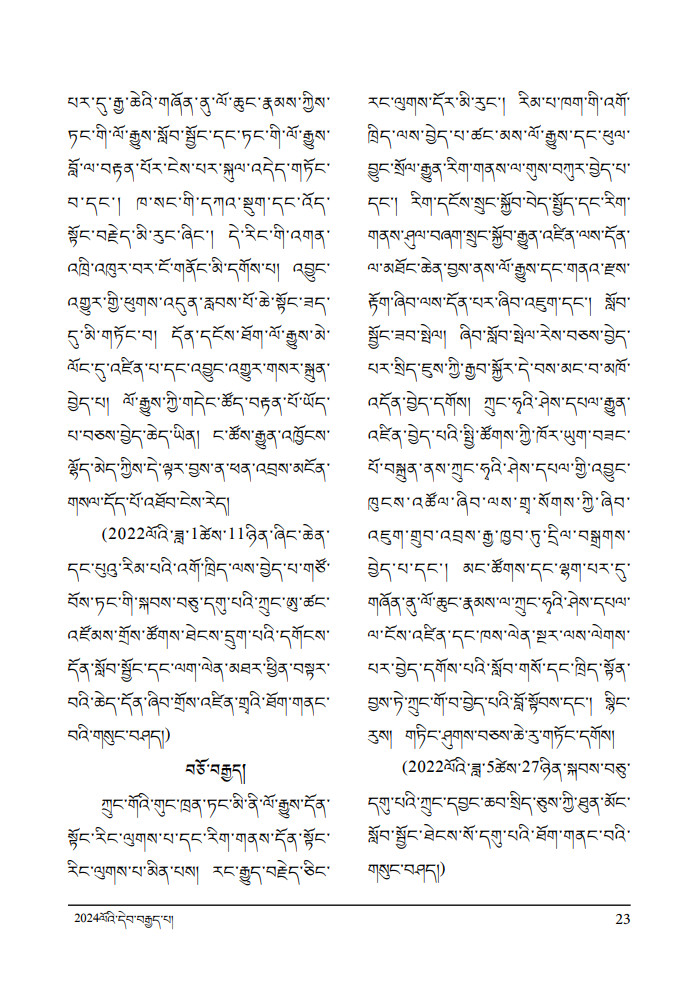 པར་དུ་རྒྱ་ཆེའི་གཞོན་ནུ་ལོ་ཆུང་རྣམས་ཀྱིས་
ཏང་གི་ལོ་རྒྱུས་སློབ་སྦྱོང་དང་ཏང་གི་ལོ་རྒྱུས་
བློ་ལ་བརྟན་པོར་ངེས་པར་སྐུལ་འདེད་གཏོང་
བ་དང་། ཁ་སང་གི་དཀའ་སྡུག་དང་འོད་
སྟོང་བརྗེད་མི་རུང་ཞིང་། དེ་རིང་གི་འགན་
འཁྲི་འཁུར་བར་ངོ་གནོང་མི་དགོས་པ། འབྱུང་
འགྱུར་གྱི་ཕུགས་འདུན་རླབས་པོ་ཆེ་སྟོང་ཟད་
དུ་མི་གཏོང་བ། དོན་དངོས་ཐོག་ལོ་རྒྱུས་མེ་
ལོང་དུ་འཛིན་པ་དང་འབྱུང་འགྱུར་གསར་སྐྲུན་
བྱེད་པ། ལོ་རྒྱུས་ཀྱི་གདེང་ཚོད་བརྟན་པོ་ཡོད་
པ་བཅས་བྱེད་ཆེད་ཡིན། ང་ཚོས་རྒྱུན་འཁྱོངས་
ལྷོད་མེད་ཀྱིས་དེ་ལྟར་བྱས་ན་ཕན་འབྲས་མངོན་
གསལ་དོད་པོ་འཐོབ་ངེས་རེད།
(2022ལོའི་ཟླ་1ཚེས་11ཉིན་ཞིང་ཆེན་
དང་པུའུ་རིམ་པའི་འགོ་ཁྲིད་ལས་བྱེད་པ་གཙོ་
བོས་ཏང་གི་སྐབས་བཅུ་དགུ་པའི་ཀྲུང་ཨུ་ཚང་
འཛོམས་གྲོས་ཚོགས་ཐེངས་དྲུག་པའི་དགོངས་
དོན་སློབ་སྦྱོང་དང་ལག་ལེན་མཐར་ཕྱིན་བསྟར་
བའི་ཆེད་དོན་ཞིབ་གྲོས་འཛིན་གྲྭའི་ཐོག་གནང་
བའི་གསུང་བཤད།)
བཅོ་བརྒྱད།
ཀྲུང་གོའི་གུང་ཁྲན་ཏང་མི་ནི་ལོ་རྒྱུས་དོན་
སྟོང་རིང་ལུགས་པ་དང་རིག་གནས་དོན་སྟོང་
རིང་ལུགས་པ་མིན་པས། རང་རྒྱུད་བརྗེད་ཅིང་
རང་ལུགས་དོར་མི་རུང་། རིམ་པ་ཁག་གི་འགོ་
ཁྲིད་ལས་བྱེད་པ་ཚང་མས་ལོ་རྒྱུས་དང་ཕུལ་
བྱུང་སྲོལ་རྒྱུན་རིག་གནས་ལ་གུས་བཀུར་བྱེད་པ་
དང་། རིག་དངོས་སྲུང་སྐྱོབ་བེད་སྤྱོད་དང་རིག་
གནས་ཤུལ་བཞག་སྲུང་སྐྱོབ་རྒྱུན་འཛིན་ལས་དོན་
ལ་མཐོང་ཆེན་བྱས་ནས་ལོ་རྒྱུས་དང་གནའ་རྫས་
རྟོག་ཞིབ་ལས་དོན་པར་ཞིབ་འཇུག་དང་། སློབ་
སྦྱོང་ཟབ་སྤེལ། ཞིབ་སློབ་སྤེལ་རེས་བཅས་བྱེད་
པར་སྲིད་ཇུས་ཀྱི་རྒྱབ་སྐྱོར་དེ་བས་མང་བ་མཁོ་
འདོན་བྱེད་དགོས། ཀྲུང་ཧྭའི་ཤེས་དཔལ་རྒྱུན་
འཛིན་བྱེད་པའི་སྤྱི་ཚོགས་ཀྱི་ཁོར་ཡུག་བཟང་
པོ་བསྐྲུན་ནས་ཀྲུང་ཧྭའི་ཤེས་དཔལ་གྱི་འབྱུང་
ཁུངས་འཚོལ་ཞིབ་ལས་གྲྭ་སོགས་ཀྱི་ཞིབ་
འཇུག་གྲུབ་འབྲས་རྒྱ་ཁྱབ་ཏུ་དྲིལ་བསྒྲགས་
བྱེད་པ་དང་། མང་ཚོགས་དང་ལྷག་པར་དུ་
གཞོན་ནུ་ལོ་ཆུང་རྣམས་ལ་ཀྲུང་ཧྭའི་ཤེས་དཔལ་
ལ་ངོས་འཛིན་དང་ཁས་ལེན་སྔར་ལས་ལེགས་
པར་བྱེད་དགོས་པའི་སློབ་གསོ་དང་ཁྲིད་སྟོན་
བྱས་ཏེ་ཀྲུང་གོ་བ་བྱེད་པའི་བློ་སྟོབས་དང་། སྙིང་
རུས། གཏིང་ཤུགས་བཅས་ཆེ་རུ་གཏོང་དགོས།
(2022ལོའི་ཟླ་5ཚེས་27ཉིན་སྐབས་བཅུ་
དགུ་པའི་ཀྲུང་དབྱང་ཆབ་སྲིད་ཅུས་ཀྱི་ཐུན་མོང་
སློབ་སྦྱོང་ཐེངས་སོ་དགུ་པའི་ཐོག་གནང་བའི་
གསུང་བཤད།)
2024ལོའི་དེབ་བརྒྱད་པ། 23